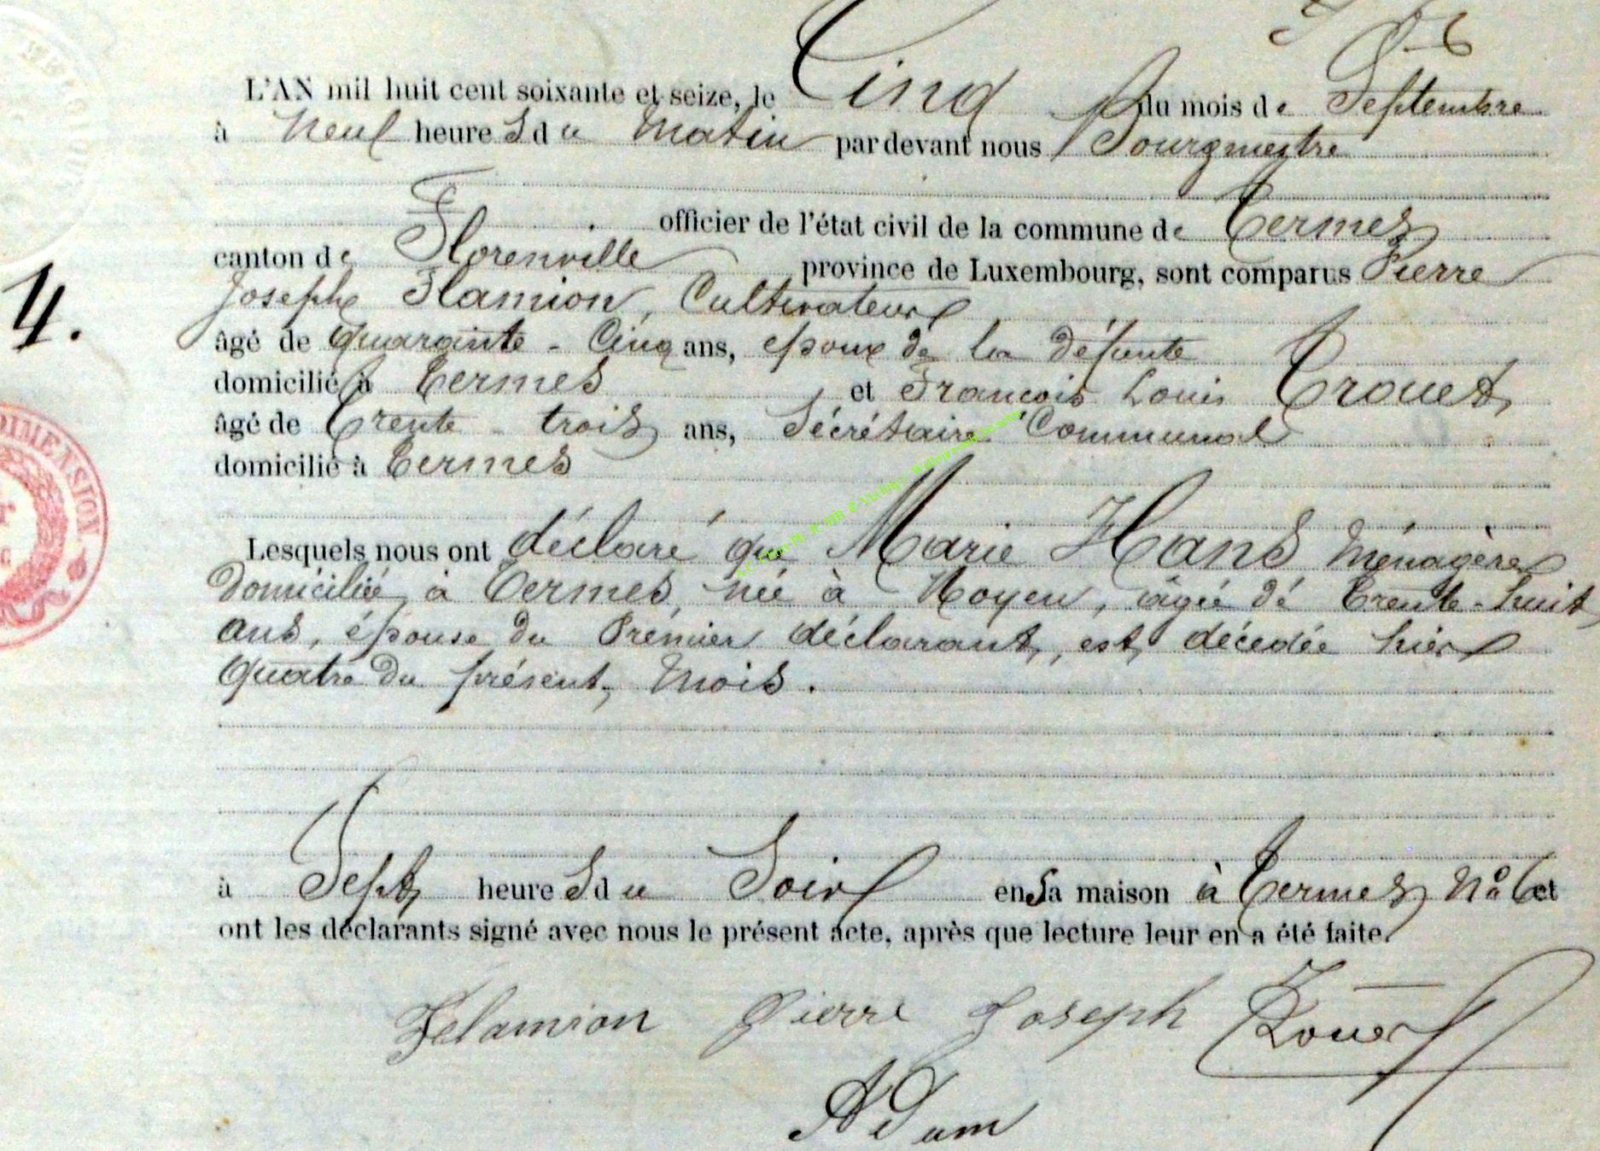 L'AN mil huit cent soixante et seize, le Cinq du mois de Septembre
à Neuf heures du Matin par devant nous Bourgmestre
officier de l'état civil de la commune de Termes
canton de Florenville province de Luxembourg, sont comparus Pierre
Joseph Flamion, Cultivateur
âgé de quarante-Cinq ans, époux de la défunte
domicilié à Termes et François Louis Trouet
âgé de Trente-trois ans, Sécrétaire Communal
domicilié à Termes
4.
DIMENSION
Lesquels nous ont déclaré que Marie Hans Ménagère
Domiciliée à Termes, née à Moyen, âgée de Trente-huit
ans, épouse du Premier déclarant, est décedée hier
quatre du présent Mois.
à Sept heures du Soir en sa maison à Termes N° 6 et
ont les déclarants signé avec nous le présent acte, après que lecture leur en a été faite.
Felamion Pierre Joseph Trouet
Adam